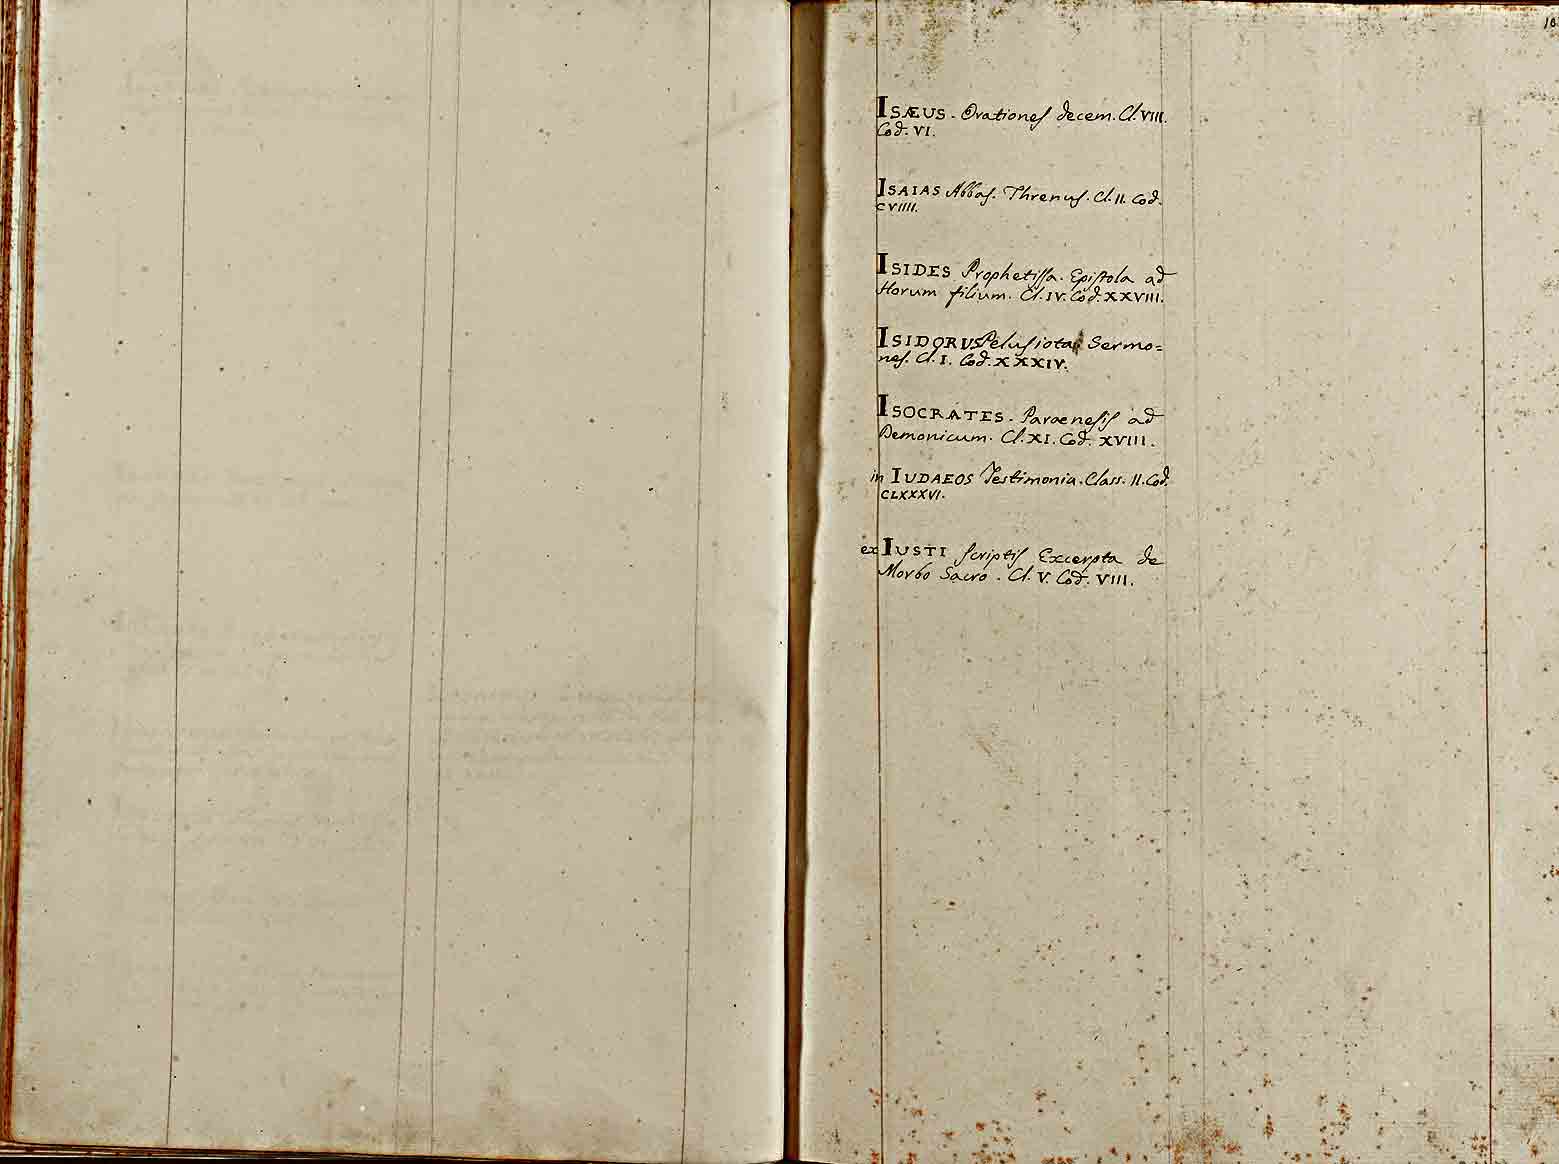 ISÆUS. Orationes decem. Cl. VIII.
Cod. VI.
ISAIAS Abbas. Threnus. Cl. II. Cod.
CVIIII.
ISIDES Prophetissa. Epistola ad
Horum filium. Cl. IV. Cod. XXVIII.
ISIDORUS Pelusiota Sermo=
nes. Cl. I. Cod. XXXIV.
ISOCRATES. Paraenesis ad
Demonicum. Cl. XI. Cod. XVIII.
in IUDAEOS Testimonia. Class. II. Cod.
CLXXXVI.
ex IUSTI scriptis Excerpta de
Morbo Sacro. Cl. V. Cod. VIII.